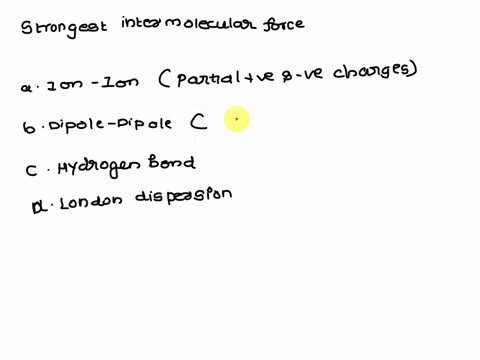 Strongest intermolecular force
a. Ion-Ion (Partial +ve & -ve charges)
b. Dipole-Dipole (
c. Hydrogen Bond
d. London dispersion